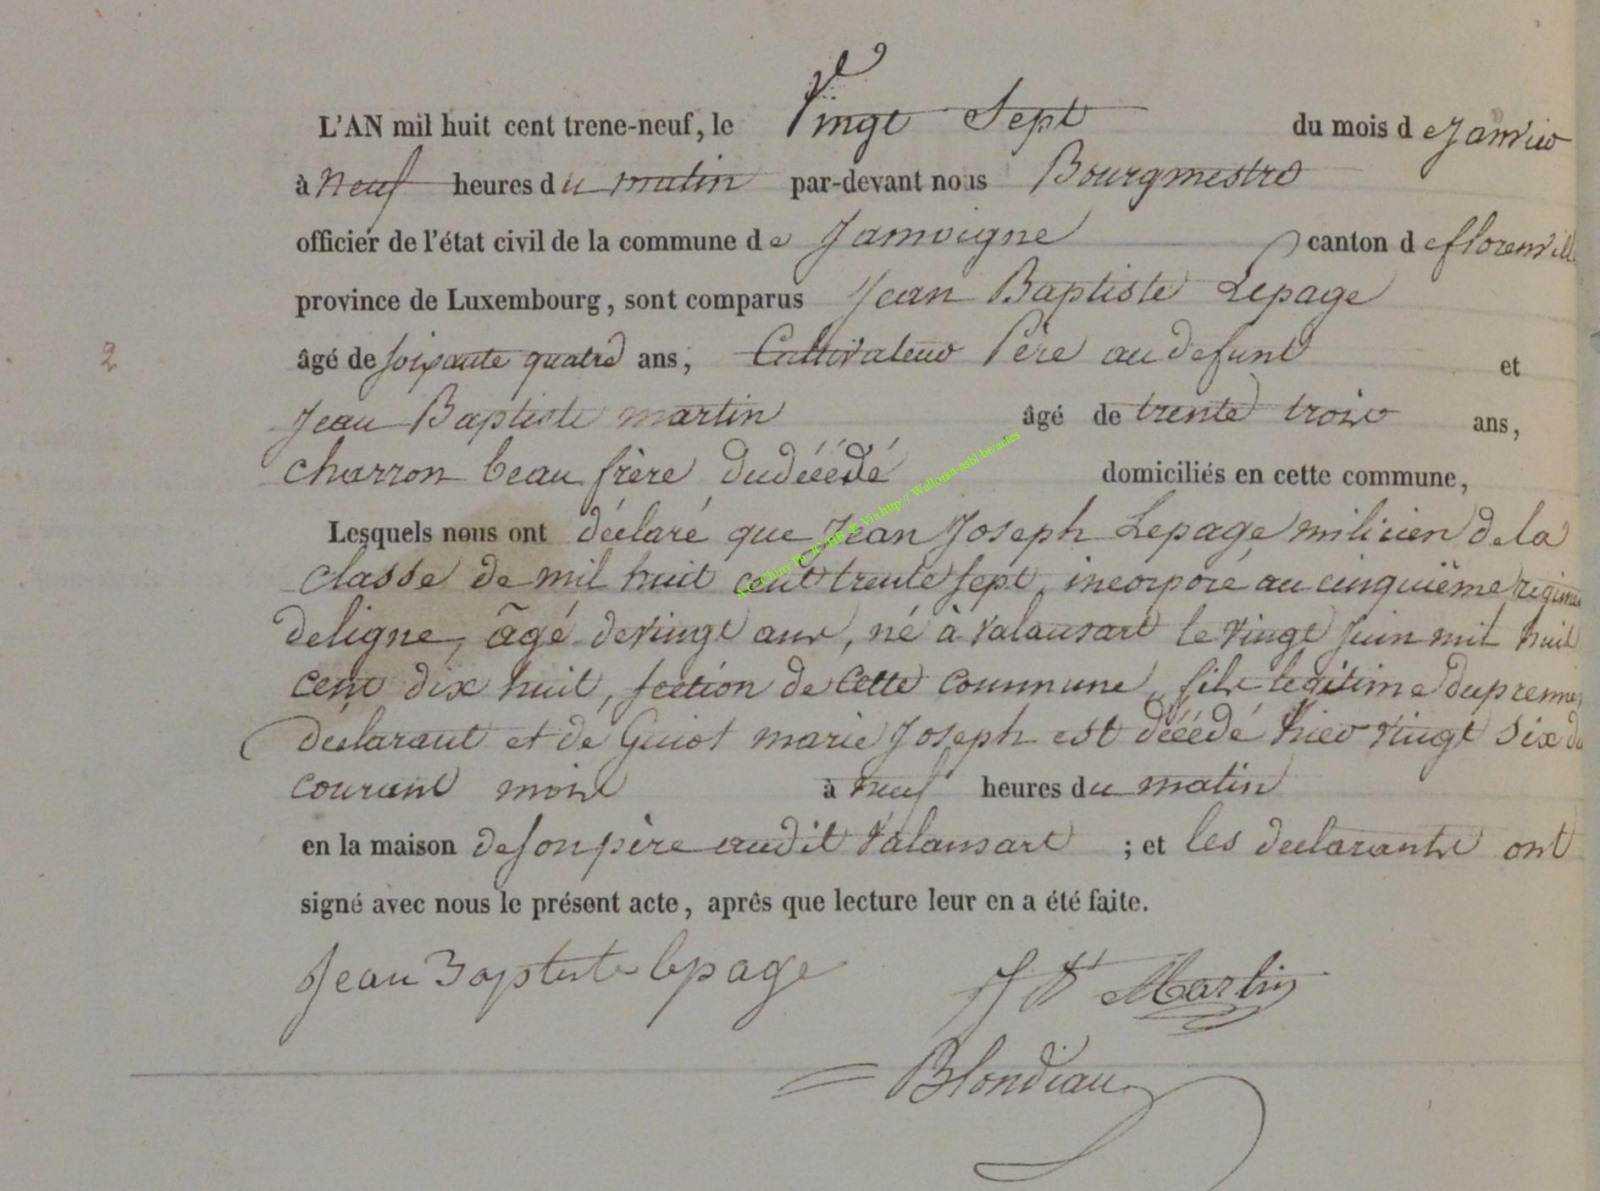 L'AN mil huit cent trene-neuf, le Vingt Sept du mois de Janvier
à neuf heures du matin par-devant nous Bourgmestre
officier de l'état civil de la commune de Jamoigne canton de florenville
province de Luxembourg, sont comparus Jean Baptiste Lepage
2 âgé de soixante quatre ans, Cultivateur Père au defunt et
Jean Baptiste martin âgé de trente trois ans,
charron beau frère du décédé domiciliés en cette commune,
Lesquels nous ont déclaré que Jean Joseph Lepage milicien de la
classe de mil huit cent trente sept, incorporé au cinquième régime
de ligne, âgé de vingt ans, né à Valansart le vingt juin mil huit
cent dix huit, section de cette commune, fils légitime du premier
déclarant et de Guiot marie Joseph est décédé hier vingt six du
courant mois à neuf heures du matin
en la maison de son père audit Valansart ; et les declarants ont
signé avec nous le présent acte, après que lecture leur en a été faite.
Jean Baptiste lepage J Bte Martin
Blondiau